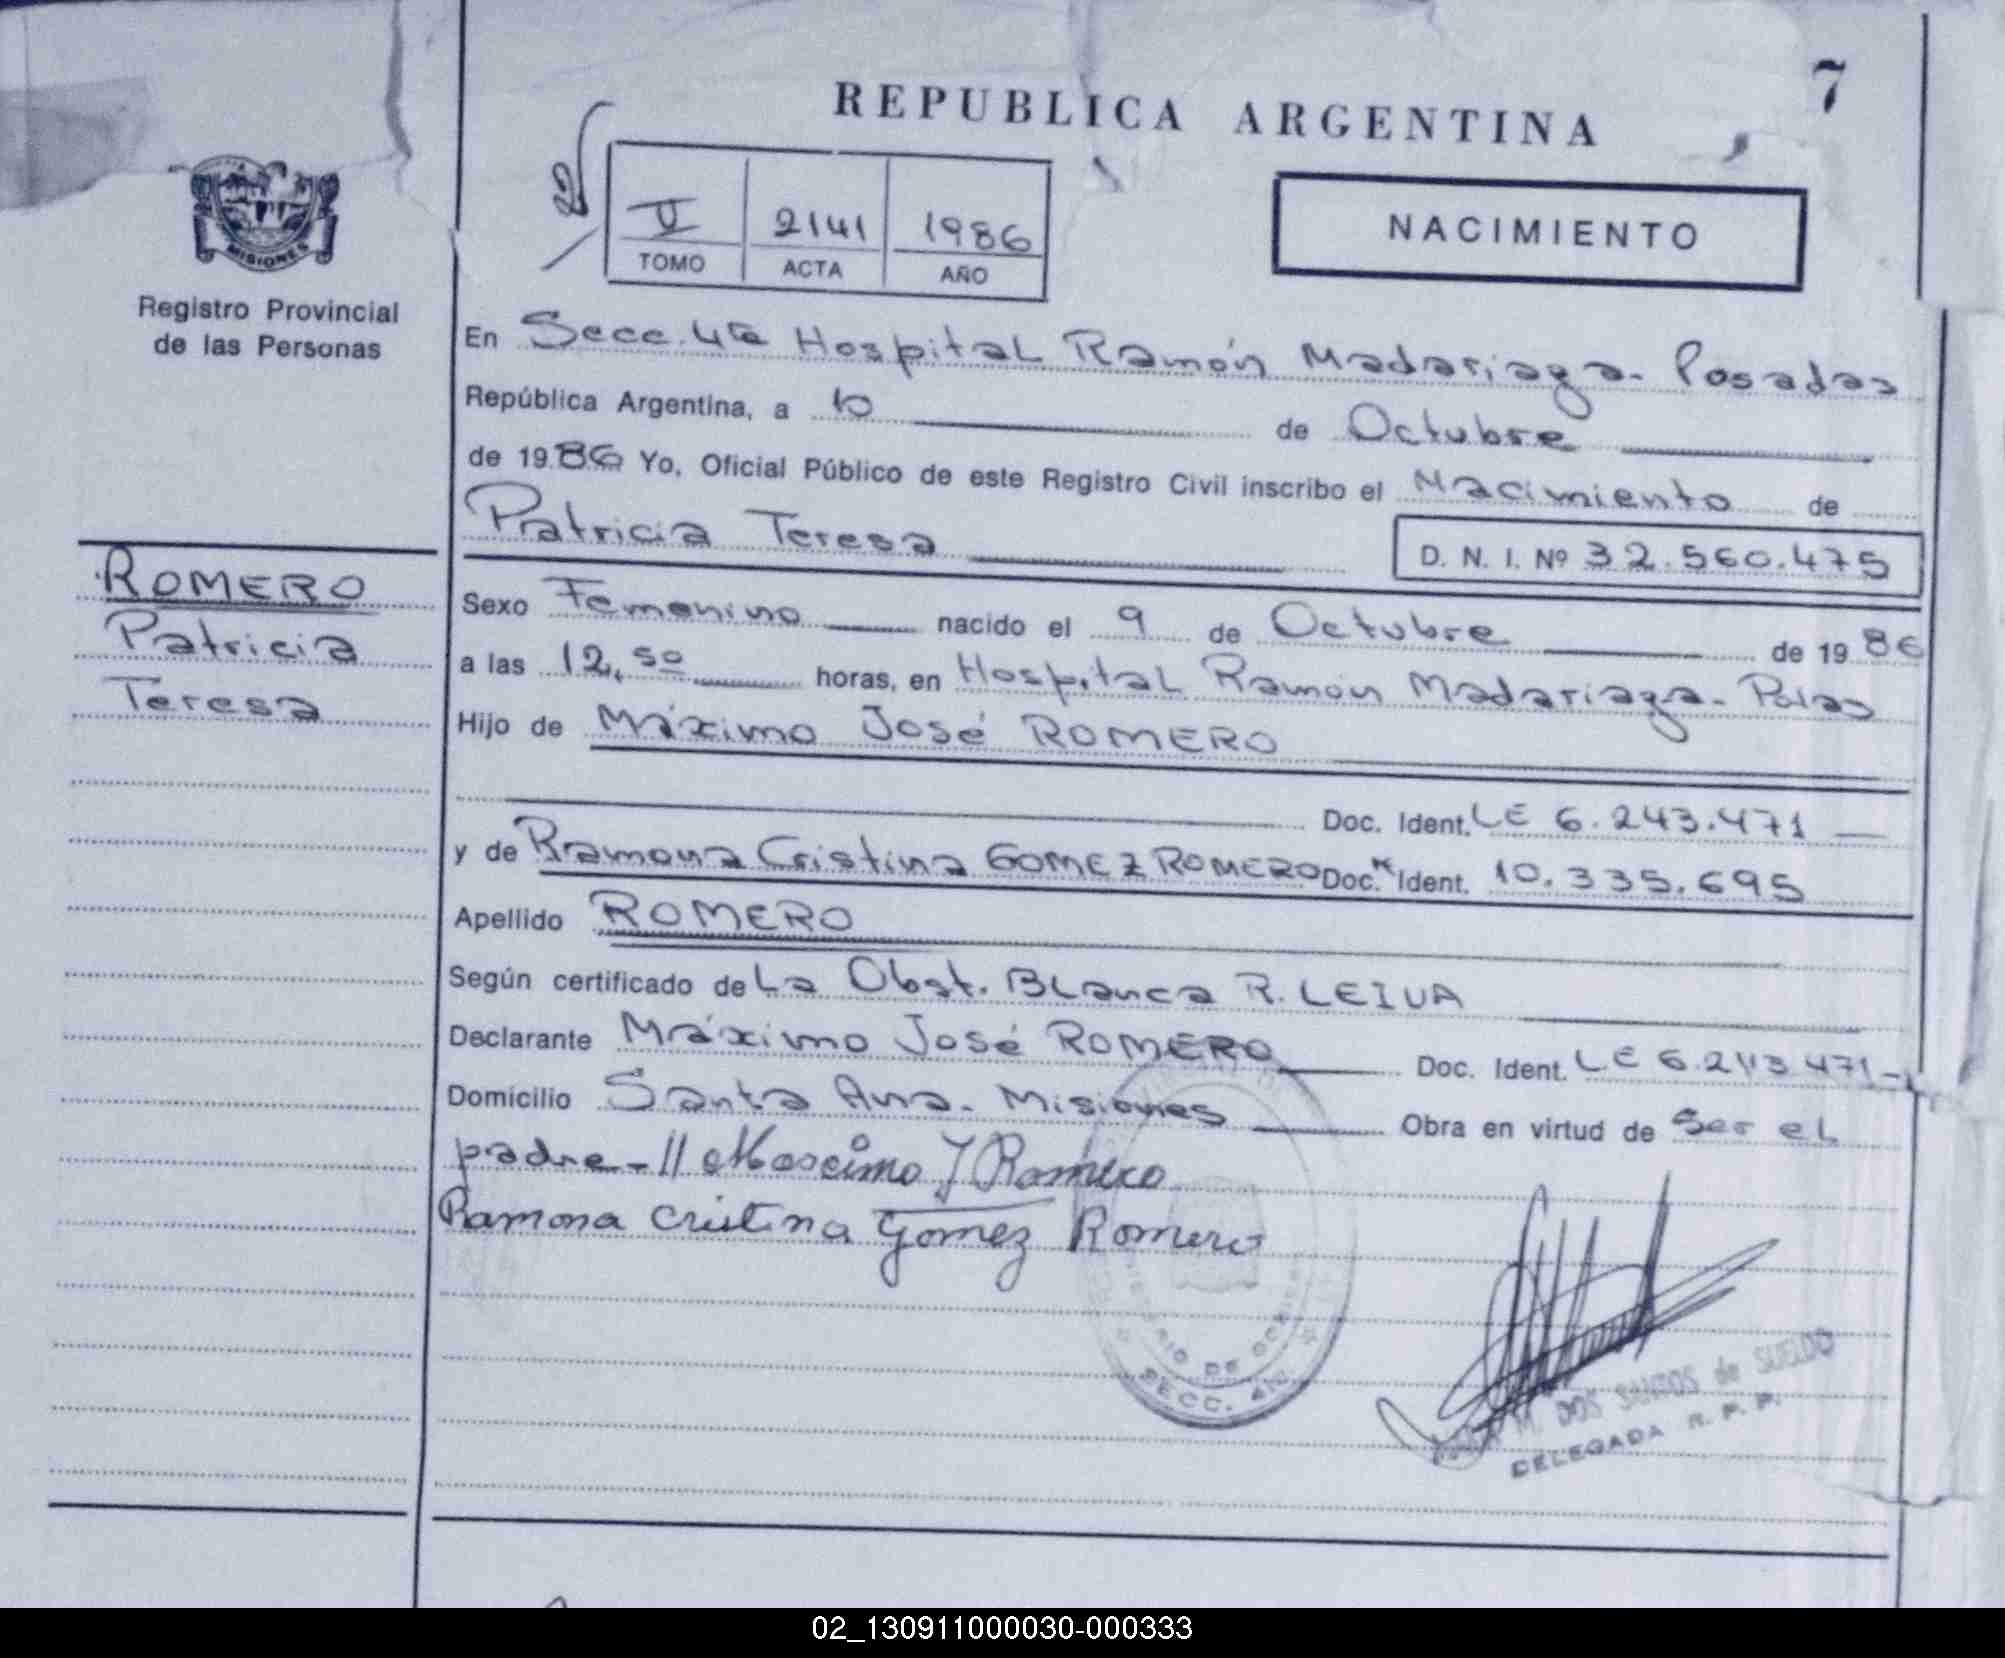 REPUBLICA ARGENTINA
7
V 2141 1986
TOMO ACTA AÑO
NACIMIENTO
MISIONES
Registro Provincial
de las Personas
En Secc. 4ta Hospital Ramón Madariaga. Posadas
República Argentina, a 10 de Octubre
de 1986 Yo, Oficial Público de este Registro Civil inscribo el Nacimiento de
Patricia Teresa
D. N. I. Nº 32.560.475
ROMERO
Patricia
Teresa
Sexo Femenino nacido el 9 de Octubre de 1986
a las 12,50 horas, en Hospital Ramón Madariaga. Pdas
Hijo de Máximo José ROMERO
Doc. Ident. LE 6.243.471
y de Ramona Cristina GOMEZ ROMERO Doc. Ident. 10.335.695
Apellido ROMERO
Según certificado de La Obst. Blanca R. LEIVA
Declarante Máximo José ROMERO Doc. Ident. LE 6.243.471
Domicilio Santa Ana. Misiones Obra en virtud de Ser el
padre - // Mascimo J Romero
Ramona Cristina Gomez Romero
SECC. 4ta
M. DOS SANTOS de SUELDO
DELEGADA R. P. P.
02_130911000030-000333